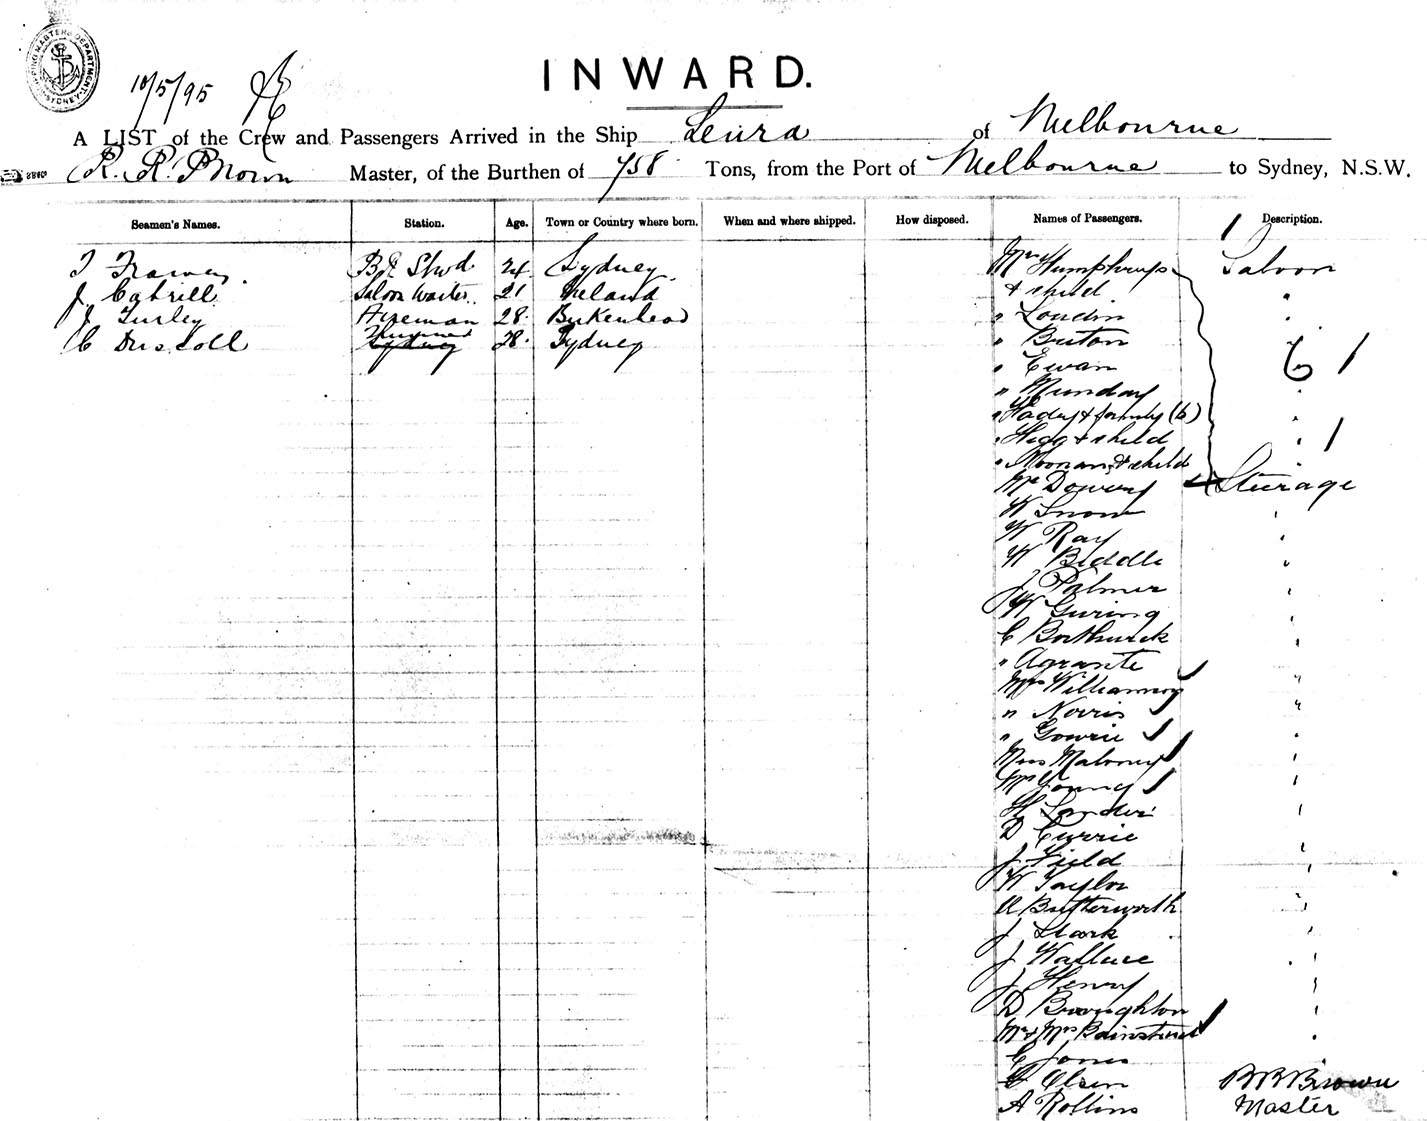 SHIPPING MASTER'S DEPARTMENT. SYDNEY
10/5/95
INWARD.
A LIST of the Crew and Passengers Arrived in the Ship Leura of Melbourne
R. R. Brown Master, of the Burthen of 758 Tons, from the Port of Melbourne to Sydney, N.S.W.
Seamen's Names. Station. Age. Town or Country where born. When and where shipped. How disposed. Names of Passengers. Description.
1
T 24 Sydney Mrs Humphreys Saloon
J. Cahill Saloon Waiter 21 Ireland & child "
J Turley Fireman 28 Birkenhead " London "
C Driscoll Sydney 28 Sydney " Buxton "
" Ewan 6 1
" Munday "
" & family (6) "
" Hegg & child " 1
" Noonan & child
Mr Downey Steerage
W Snow "
W Ray "
W Biddle "
J Palmer "
W Guring "
C Borthwick "
" Agrante "
Mrs Williamson "
" Norris "
" Gowrie "
Miss Maloney "
Mr Young "
H "
D Currie "
J Field "
W Taylor "
A Butterworth "
J Stark "
J Wallace "
J Henry "
D Broughton "
Mr & Mrs "
C Jones
Olsen R R Brown
A Rollins Master